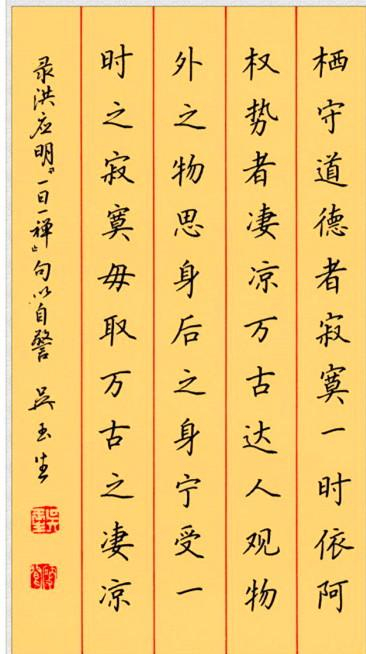 栖守道德者寂寞一时依阿
权势者凄凉万古达人观物
外之物思身后之身宁受一
时之寂寞毋取万古之凄凉
录洪应明《一日一禅》句以自警 吴玉生